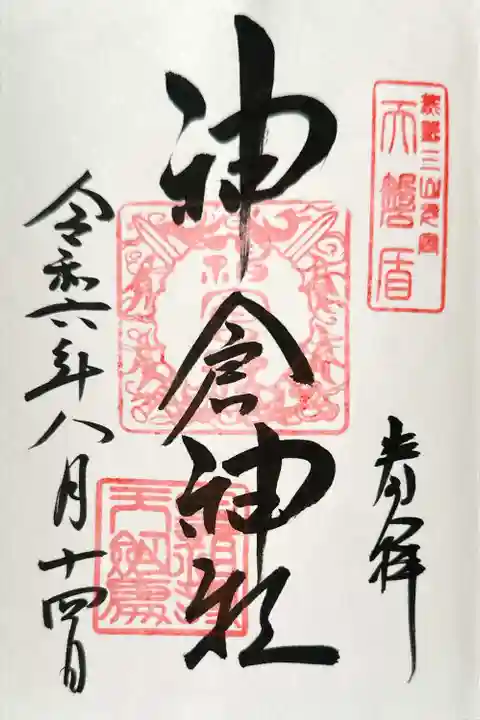 熊野三山元宮
天磐盾
奉拝
神倉神社
令和六年八月十四日